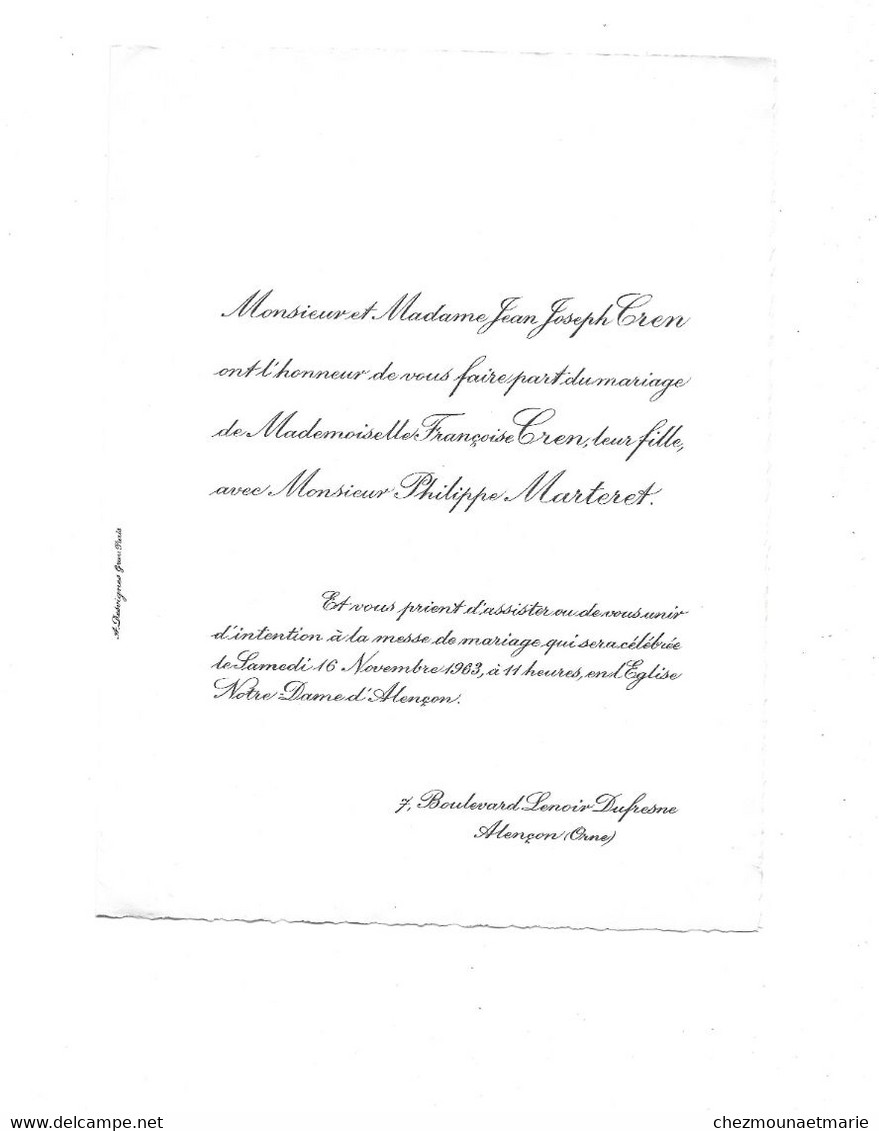 Monsieur et Madame Jean Joseph Cren
ont l'honneur de vous faire part du mariage
de Mademoiselle Françoise Cren, leur fille,
avec Monsieur Philippe Marteret.
Et vous prient d'assister ou de vous unir
d'intention à la messe de mariage qui sera célébrée
le Samedi 16 Novembre 1963, à 11 heures, en l'Eglise
Notre-Dame d'Alençon.
7, Boulevard Lenoir Dufresne
Alençon (Orne)
Paris
delcampe.net
chezmounaetmarie